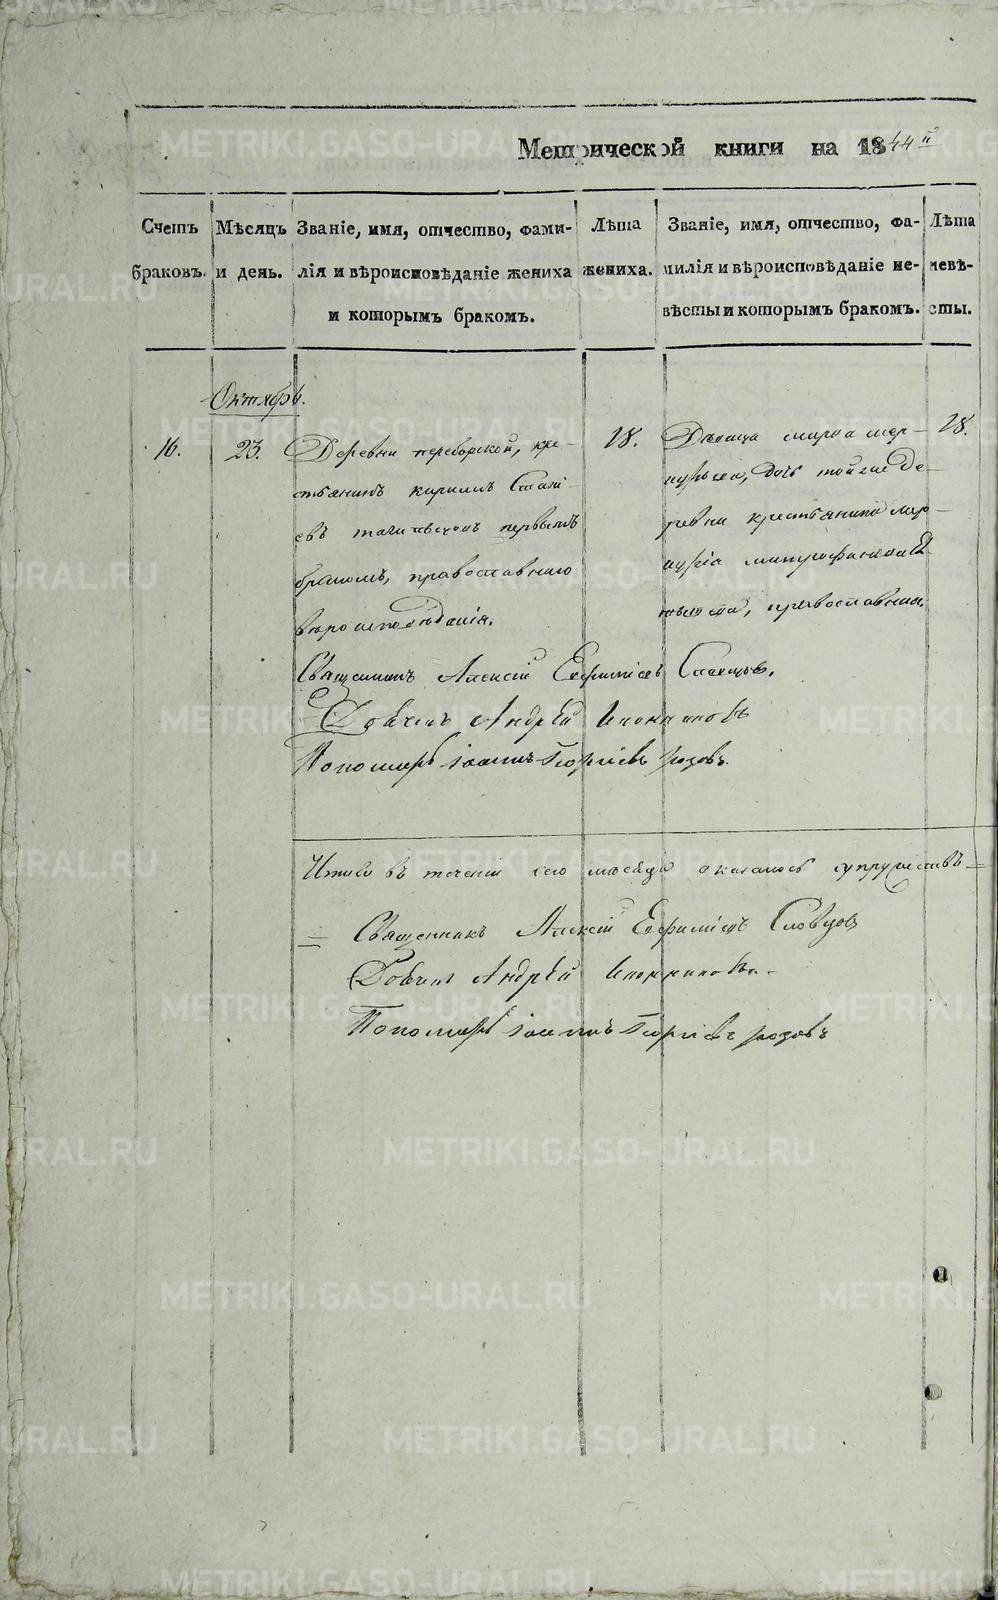 Метрической книги на 1844й
Счетъ браковъ.
Мѣсяцъ и день.
Званіе, имя, отчество, фами-
лія и вѣроисповѣданіе жениха
и которымъ бракомъ.
Лѣта жениха.
Званіе, имя, отчество, фа-
милія и вѣроисповѣданіе не-
вѣсты и которымъ бракомъ.
Лѣта невѣ-
сты.
Октябрь.
16.
23.
Деревни переборской, кре-
стьянинъ кирилъ
евъ первымъ
бракомъ, православнаго
вѣроисповѣданія.
18.
Дѣвица
дочь тойже де-
ревни крестьянина
православнаго
18.
Священникъ Алексій Евфиміевъ Словцовъ.
Дьячекъ Андрей Иконниковъ
Пономарь Іоаннъ Георгіевъ розовъ.
Итого въ теченіи сего мѣсяца оказалось супружествъ =
= Священникъ Алексій Евфиміевъ Словцовъ
Дьячекъ Андрей Иконниковъ.
Пономарь Іоаннъ Георгіевъ розовъ
METRIKI.GASO-URAL.RU